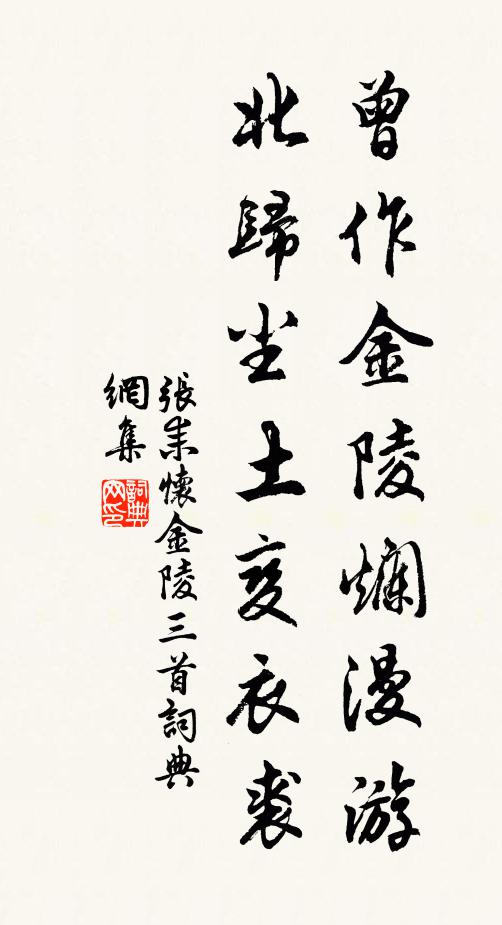 曾作金陵爛漫游
北歸尘土变衣裘
張耒懷金陵三首詞典
網集
詞典網印